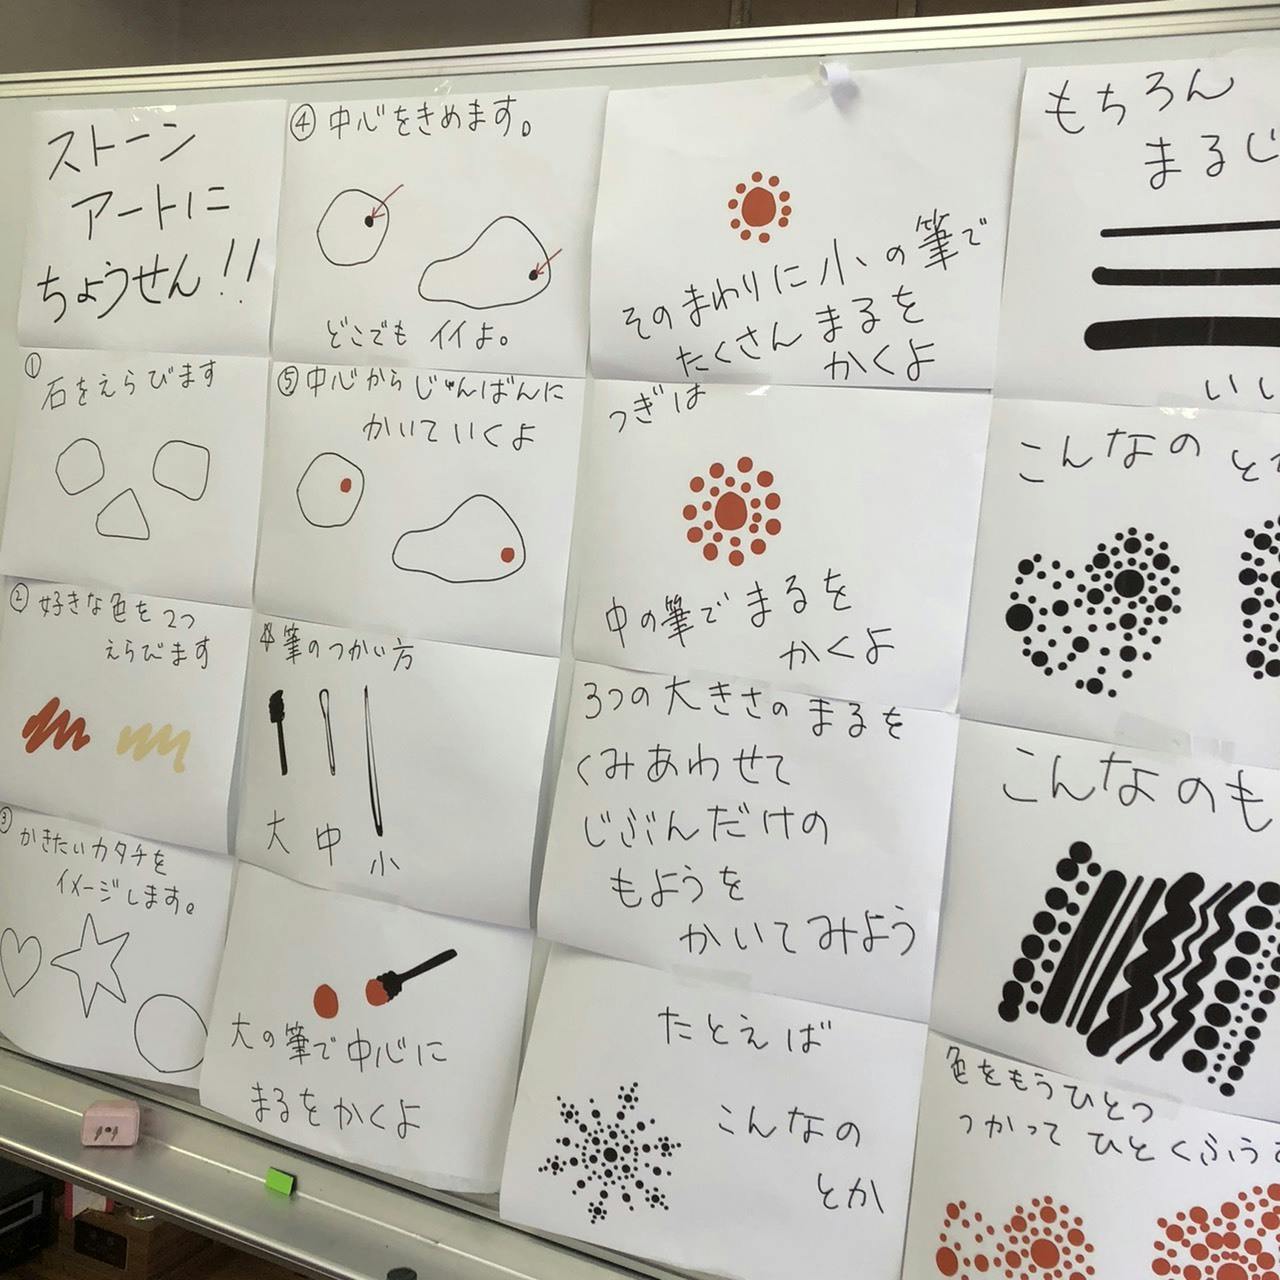 ストーン
アートに
ちょうせん!!
①
石をえらびます
②好きな色を2つ
えらびます
③
かきたいカタチを
イメージします。
④中心をきめます。
どこでもイイよ。
⑤中心からじゅんばんに
かいていくよ
筆のつかい方
大 中 小
大の筆で中心に
まるをかくよ
そのまわりに小の筆で
たくさんまるを
かくよ
つぎは
中の筆でまるを
かくよ
3つの大きさのまるを
くみあわせて
じぶんだけの
もようを
かいてみよう
たとえば
こんなの
とか
もちろん
まるじ
いい
こんなの
こんなのも
色をもうひとつ
つかってひとくふう